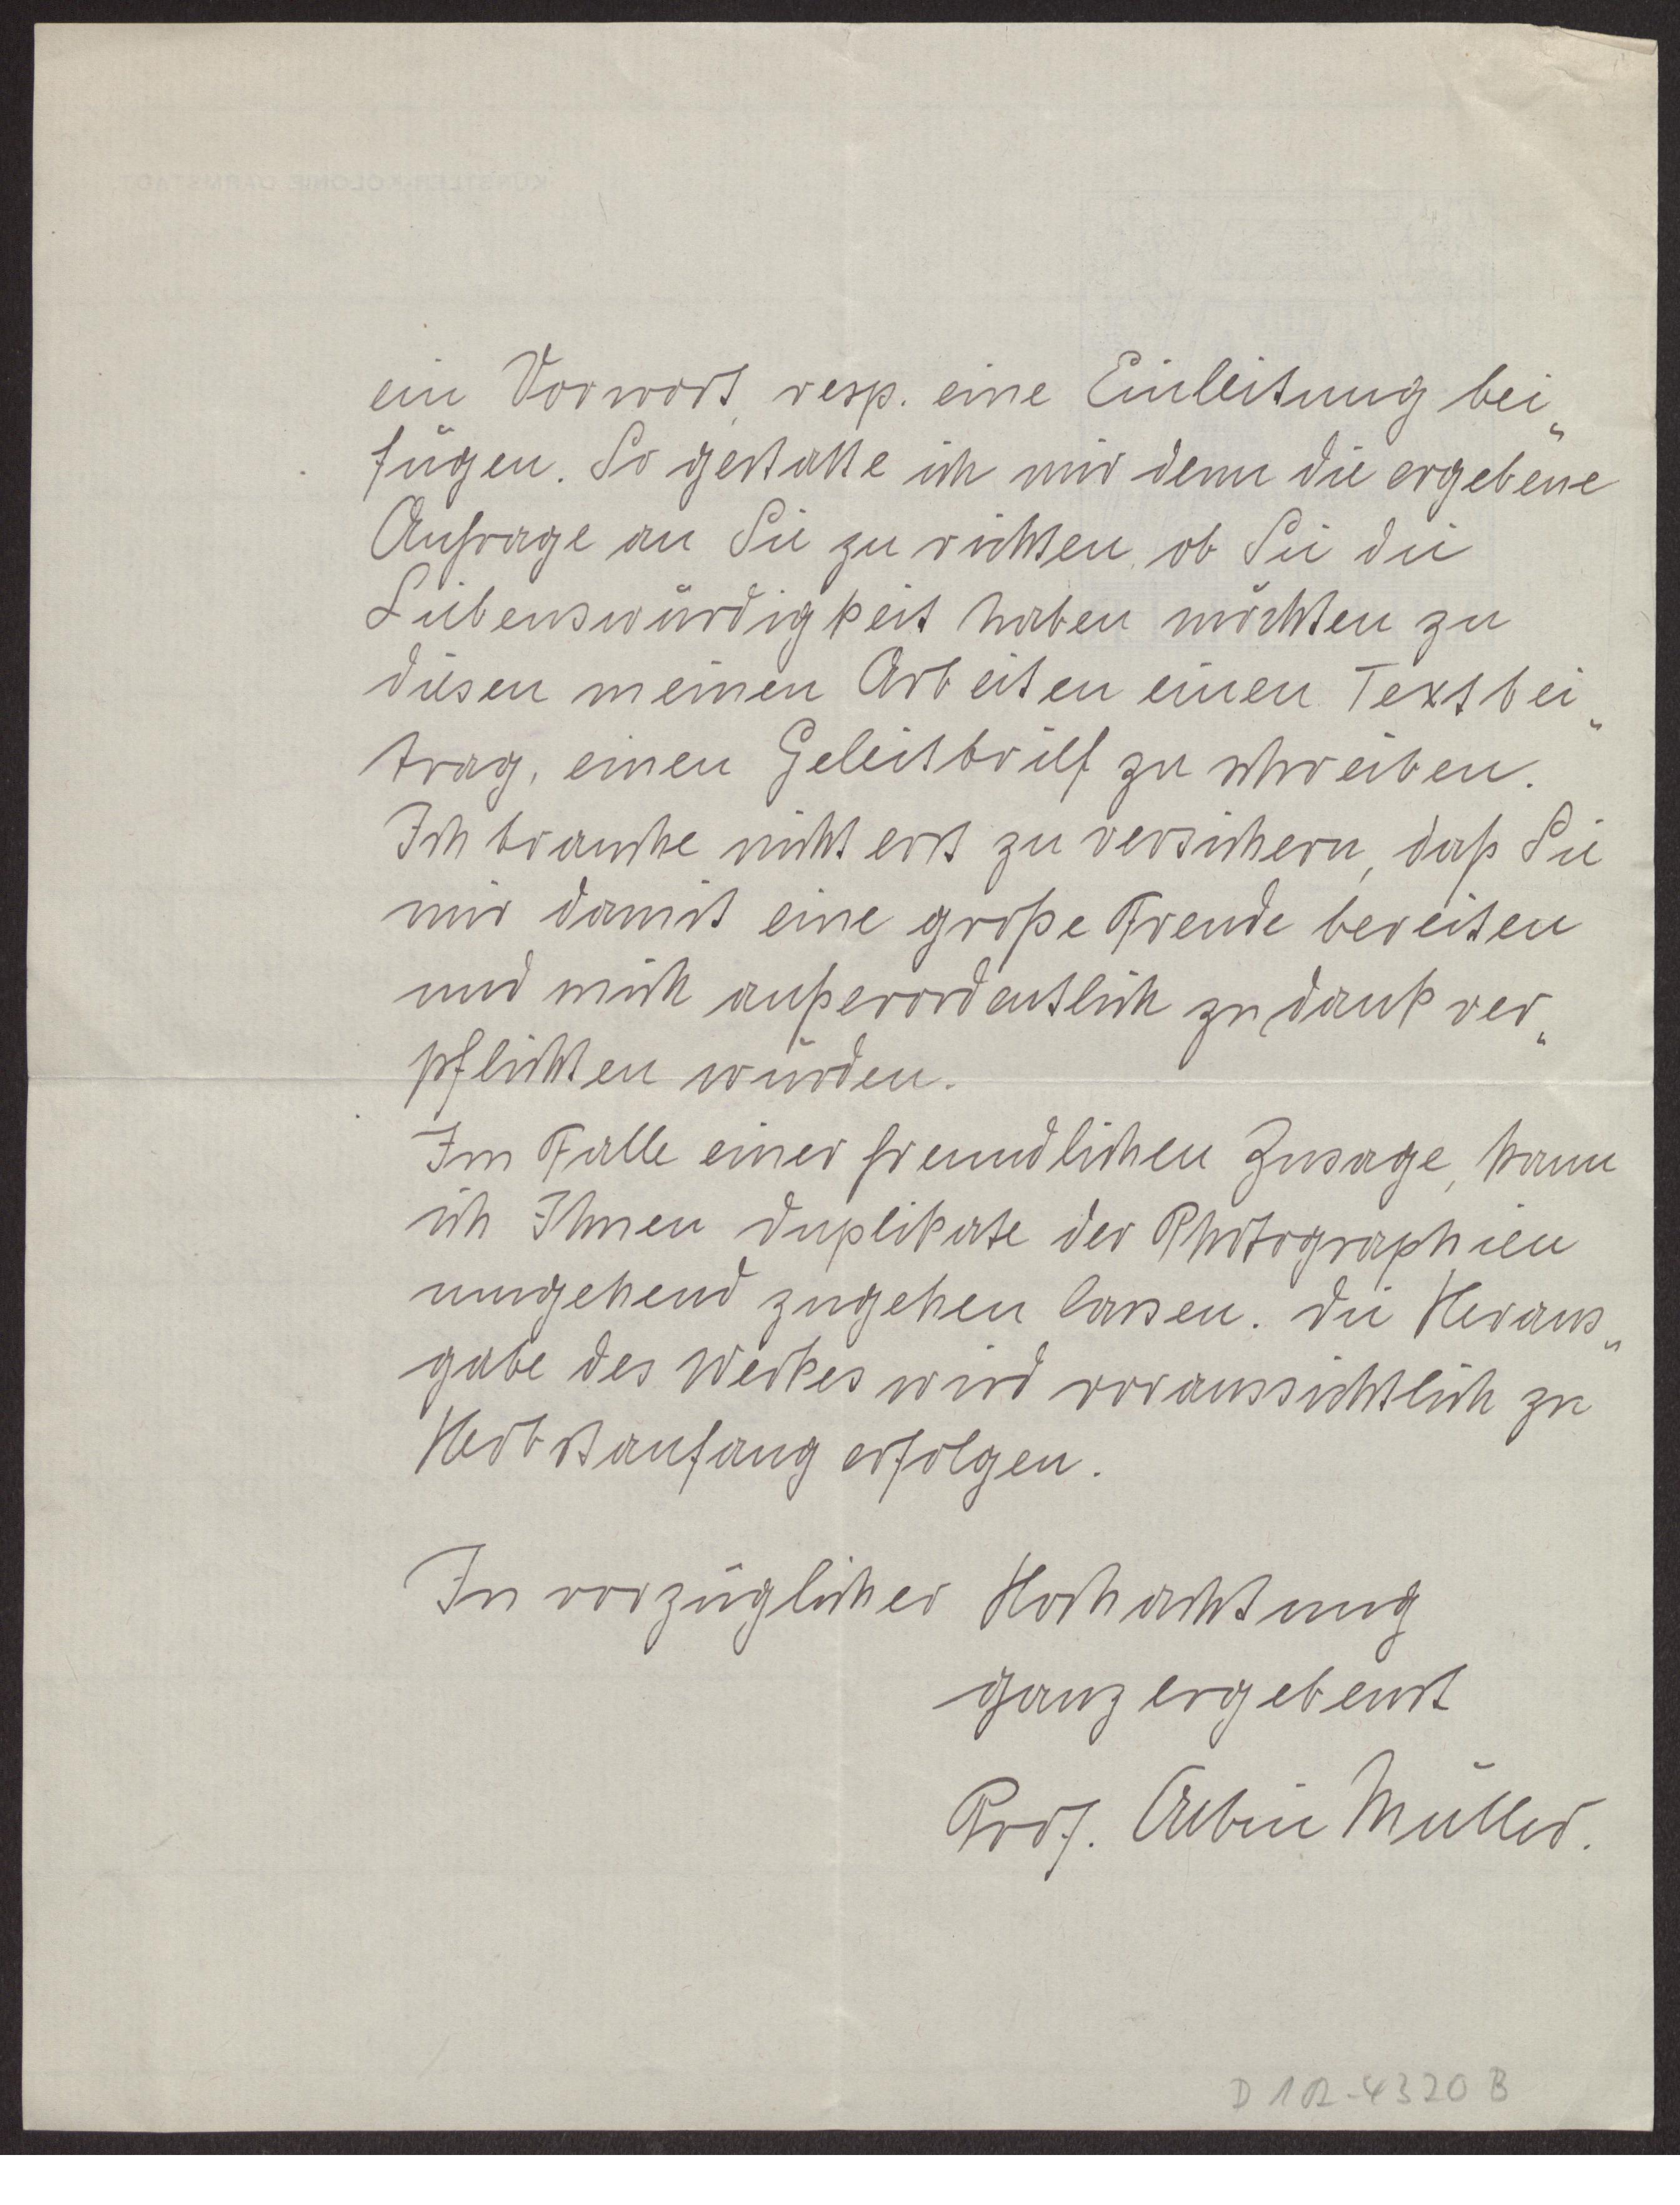 ein Vorwort, resp. eine Einleitung bei„
fügen. So gestatte ich mir denn die ergebene
Anfrage an Sie zu richten, ob Sie die
Liebenswürdigkeit haben möchten zu
diesen meinen Arbeiten einen Textbei„
trag, einen Geleitbrief zu schreiben.
Ich brauche nicht erst zu versichern, daß Sie
mir damit eine große Freude bereiten
und mich außerordentlich zu dank ver„
pflichten würden.
Im Falle einer freundlichen Zusage, kann
ich Ihnen duplikate der Photographien
umgehend zugehen lassen. die Heraus„
gabe des Werkes wird voraussichtlich zu
Herbstanfang erfolgen.
In vorzüglicher Hochachtung
ganz ergebenst
Prof. Albin Müller.
D 102-4320 B
KÜNSTLER-KOLONIE DARMSTADT